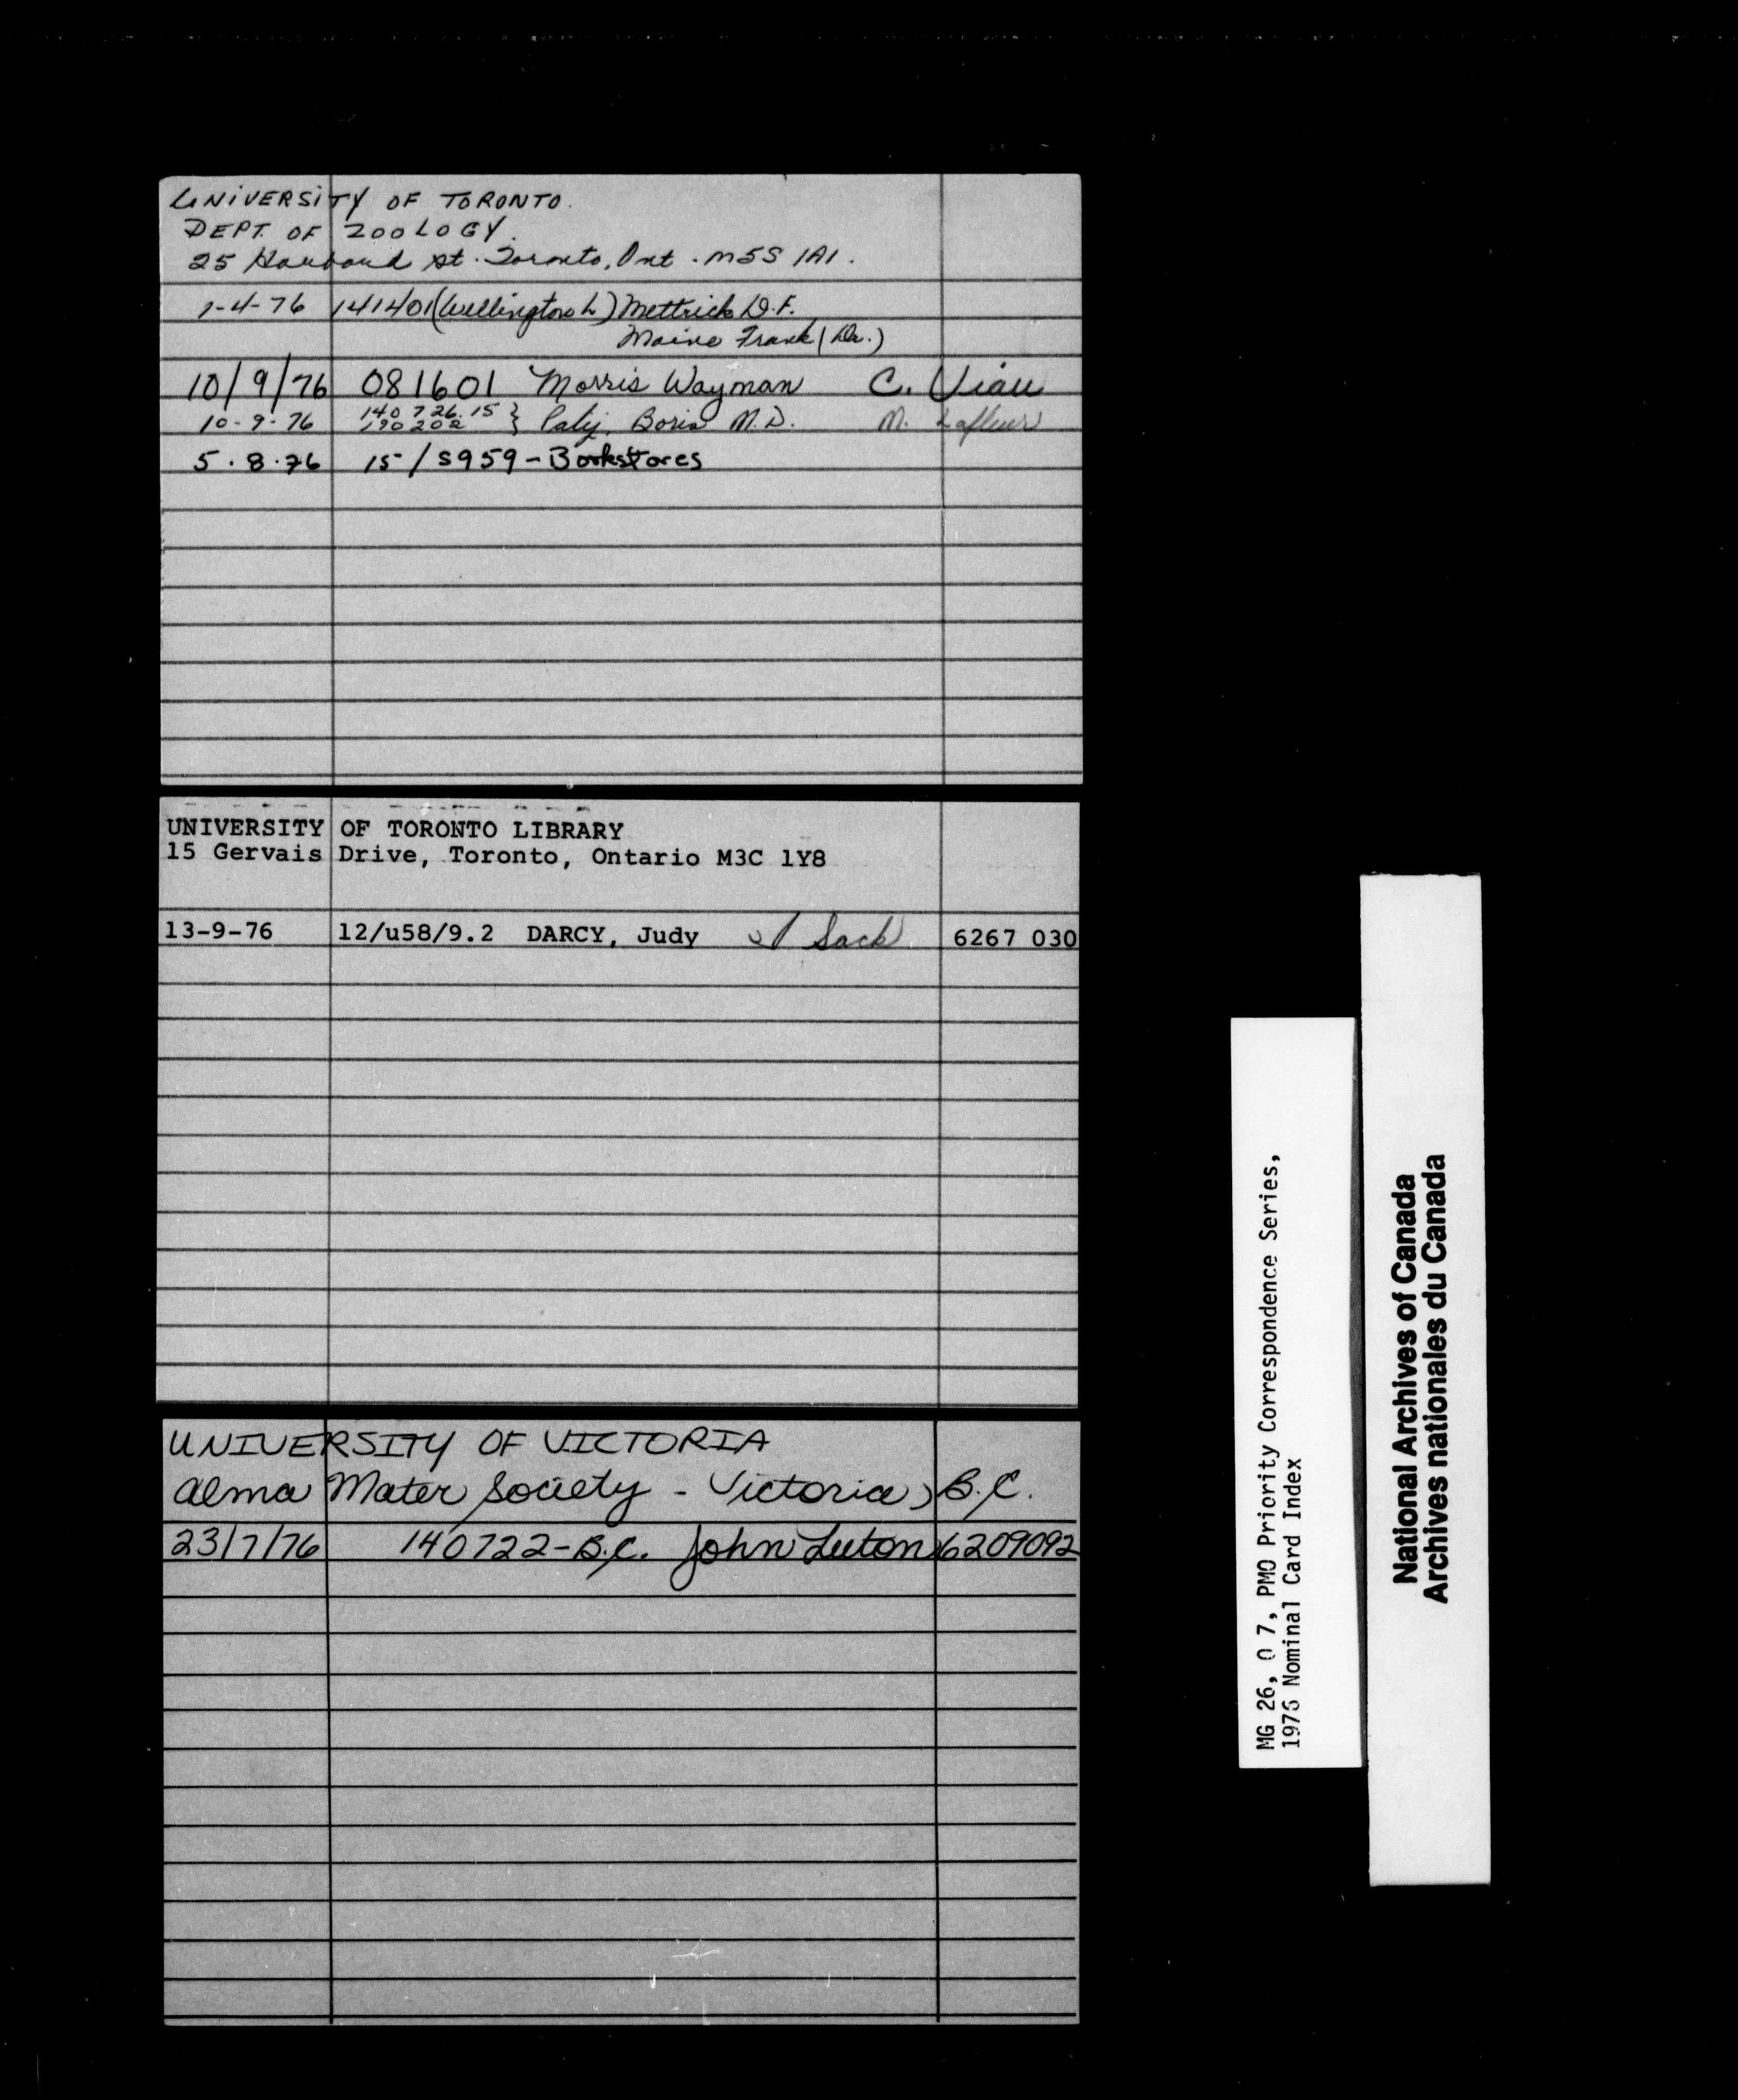 UNIVERSITY OF TORONTO.
DEPT. OF ZOOLOGY.
25 Harbord St. Toronto, Ont. M5S 1A1.
1-4-76 141401 (Wellington L) Mettrick D.F.
Maine Frank (Dr.)
10/9/76 081601 Morris Wayman C. Viau
10-9-76 140726.15 } Palij, Boris M.D. M. Lafleur
190202
5.8.76 15/S959-Bookstores
UNIVERSITY OF TORONTO LIBRARY
15 Gervais Drive, Toronto, Ontario M3C 1Y8
13-9-76 12/u58/9.2 DARCY, Judy Sack 6267 030
UNIVERSITY OF VICTORIA
Alma Mater Society - Victoria, B.C.
23/7/76 140722-B.C. John Luton 6209092
MG 26, O 7, PMO Priority Correspondence Series,
1976 Nominal Card Index
National Archives of Canada
Archives nationales du Canada